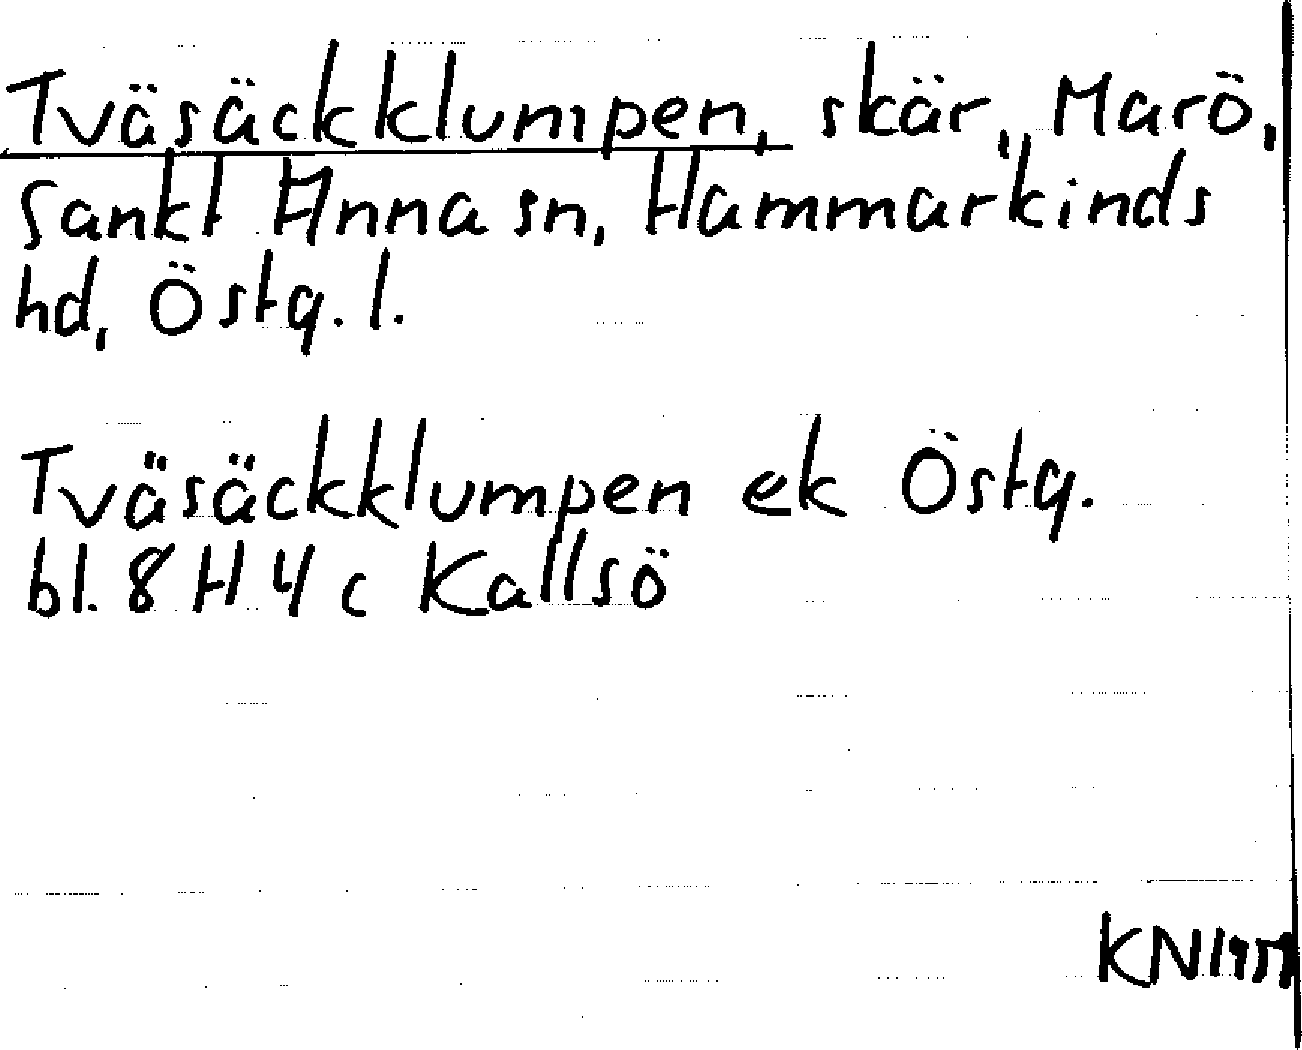 Tväsäckklumpen, skär, Marö,
Sankt Anna sn, Hammarkinds
hd, Östg. l.
Tväsäckklumpen ek Östg.
bl. 8 H 4 c Kallsö
KN